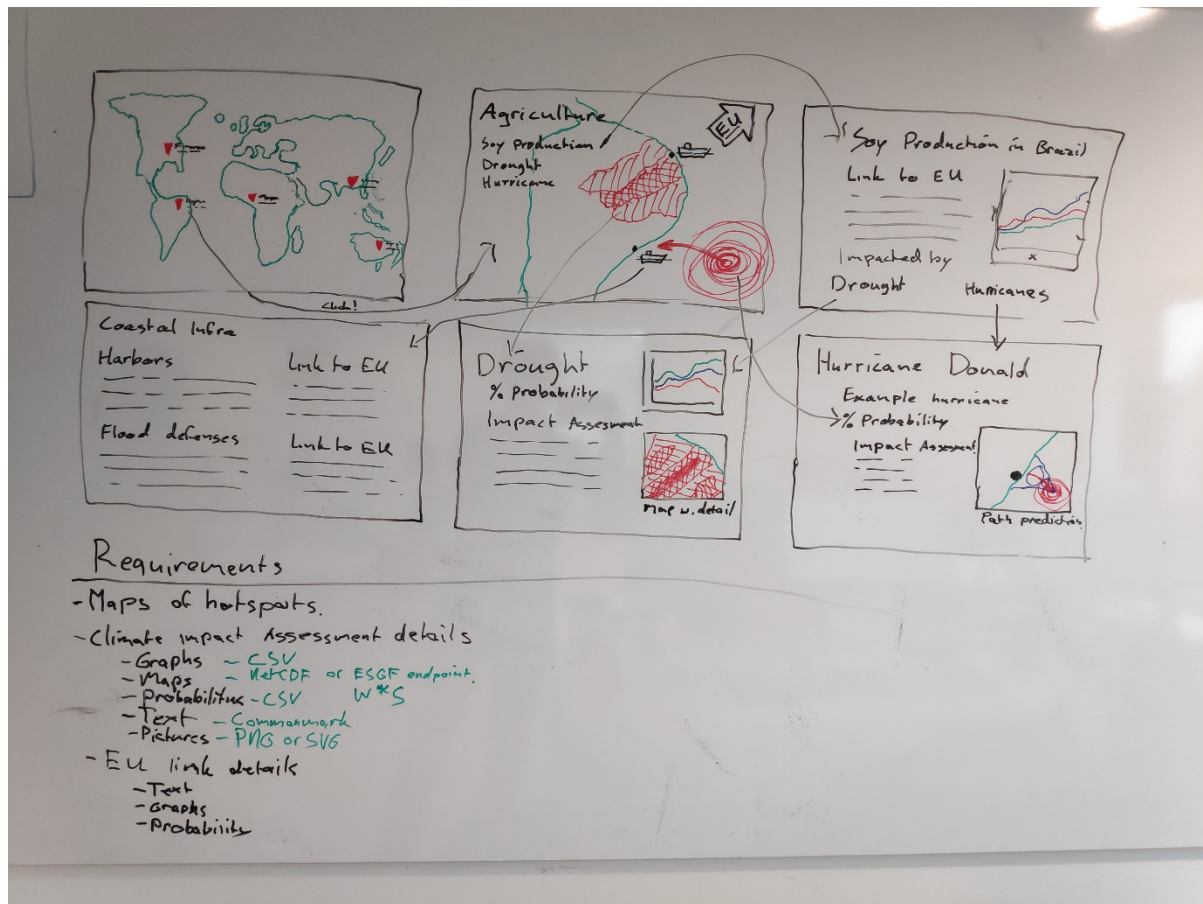 Click!
Agriculture
Soy Production
Drought
Hurricane
EU
Soy Production in Brazil
Link to EU
Impacted by
Drought
Hurricanes
x
Coastal Infra
Harbors
Link to EU
Flood defenses
Link to EU
Drought
% Probability
Impact Assesment
Map w. detail
Hurricane Donald
Example hurricane
% Probability
Impact Assesment
Path prediction
Requirements
- Maps of hotspots.
- Climate impact Assessment details
- Graphs - CSV
- Maps - NetCDF or ESGF endpoint.
- Probabilities - CSV W*S
- Text - Commonmark
- Pictures - PNG or SVG
- EU link details
- Text
- Graphs
- Probability